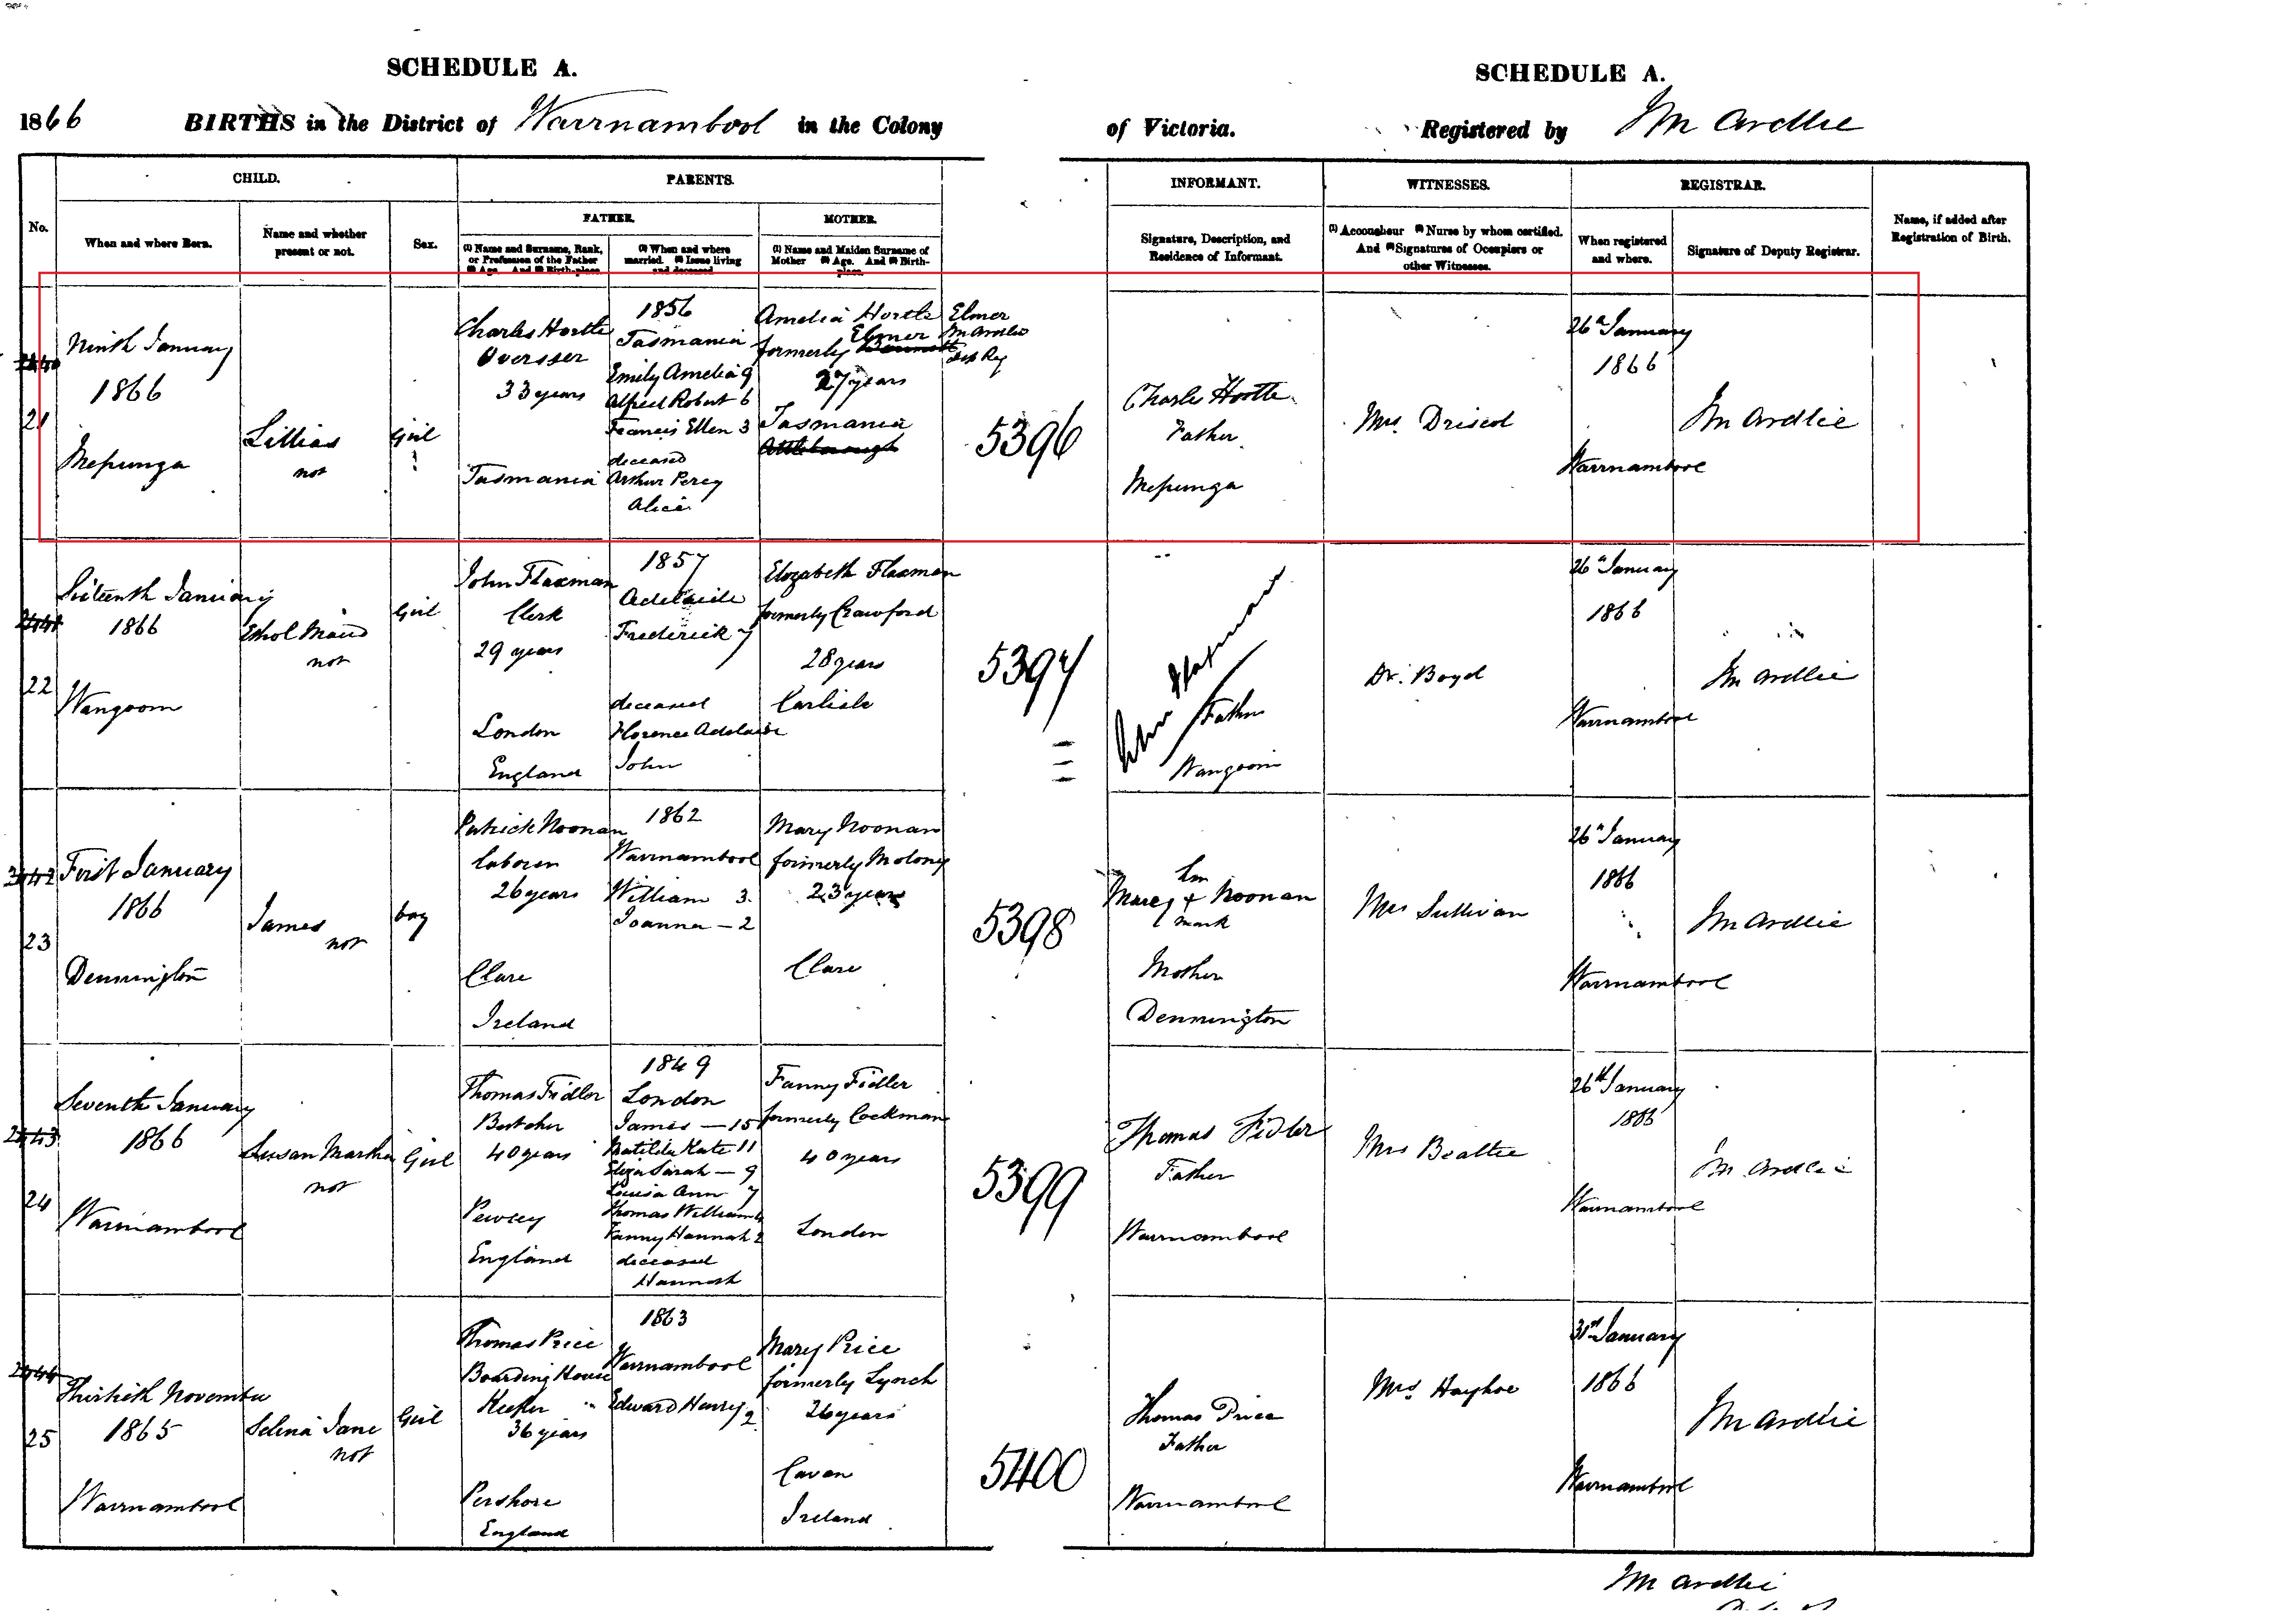 SCHEDULE A.
SCHEDULE A.
1866 BIRTHS in the District of Warrnambool in the Colony of Victoria. Registered by Wm Ardlie
CHILD.
PARENTS.
INFORMANT.
WITNESSES.
REGISTRAR.
No.
When and where Born.
Name and whether
present or not.
Sex.
FATHER.
(1) Name and Surname, Rank,
or Profession of the Father
(2) Age. And (3) Birth-place.
(1) When and where
married. (2) Issue living
and deceased.
MOTHER.
(1) Name and Maiden Surname of
Mother (2) Age. And (3) Birth-
place.
Signature, Description, and
Residence of Informant.
(1) Accoucheur (2) Nurse by whom certified.
And (3) Signatures of Occupiers or
other Witnesses.
When registered
and where.
Signature of Deputy Registrar.
Name, if added after
Registration of Birth.
2440
21
Ninth January
1866
Mepunga
Lillias
not
Girl
Charles Hortle
Overseer
33 years
Tasmania
1856
Tasmania
Emily Amelia 9
Alfred Robert 6
Francis Ellen 3
deceased
Arthur Percy
Alice
Amelia Hortle
Elmer
formerly
27 years
Tasmania
Attleborough
Elmer
Wm Ardlie
Dep Reg
5396
Charles Hortle
Father
Mepunga
Mrs. Driscol
26th January
1866
Warrnambool
Wm Ardlie
2441
22
Sixteenth January
1866
Wangoom
Ethel Maud
not
Girl
John Flaxman
Clerk
29 years
London
England
1857
Adelaide
Frederick 7
deceased
Florence Adelaide
John
Elizabeth Flaxman
formerly Crawford
28 years
Carlisle
5397
John Flaxman
Father
Wangoom
Dr. Boyd
26th January
1866
Warrnambool
Wm Ardlie
2442
23
First January
1866
Dennington
James
not
boy
Patrick Noonan
laborer
26 years
Clare
Ireland
1862
Warrnambool
William 3.
Joanna — 2
Mary Noonan
formerly Molony
23 years
Clare
5398
her
Mary + Noonan
mark
Mother
Dennington
Mrs Sullivan
26th January
1866
Warrnambool
Wm Ardlie
2443
24
Seventh January
1866
Warrnambool
Susan Martha
not
Girl
Thomas Fidler
Butcher
40 years
Pewsey
England
1849
London
James — 15
Matilda Kate 11
Eliza Sarah — 9
Louisa Ann 7
Thomas William 4
Fanny Hannah 2
deceased
Hannah
Fanny Fidler
formerly Cockman
40 years
London
5399
Thomas Fidler
Father
Warrnambool
Mrs Beattie
26th January
1866
Warrnambool
Wm Ardlie
2444
25
Thirtieth November
1865
Warrnambool
Selina Jane
not
Girl
Thomas Price
Boarding House
Keeper
36 years
Pershore
England
1863
Warrnambool
Edward Henry 2
Mary Price
formerly Lynch
26 years
Cavan
Ireland
5400
Thomas Price
Father
Warrnambool
Mrs Hayhoe
31st January
1866
Warrnambool
Wm Ardlie
Wm Ardlie